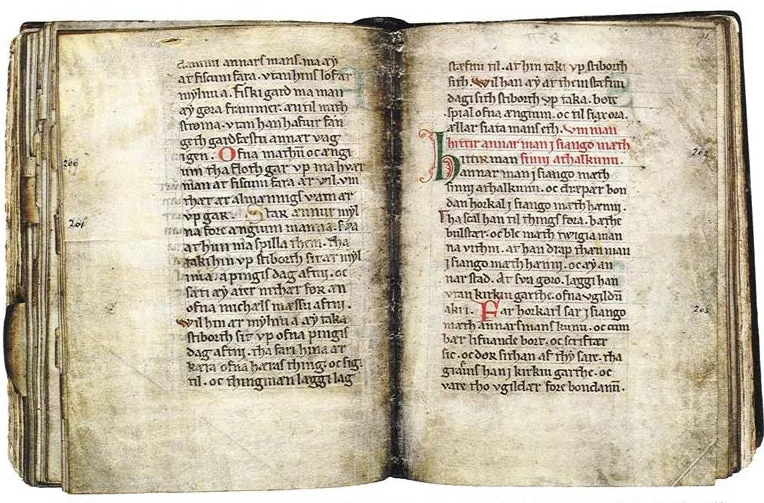 dammi annars mans. ma æy
at fiscum fara. vtan hins lof ær
mylnu a. Fiski gard ma man
æy gøra frammer. æn til mæth
stroma. vtan han hafuer fan
geth gardfæstu annær vag
ingen. Ofna mathu oc ængi
um tha floth gar vp ma hvær
man at fiscum fara ær vil. vm
that ær almænnigs vatn ær
vp gar. Star ænnur myl
na fore ængium manna. Fya
at hun ma spilla them. tha
taki hin vp stiborth sit ær myl
nu a. a pingis dag aftni. oc
sæti æy ater nithær for æn
ofna michæls mæssu aftni.
Wil hin ær mylnu a æy taka
stiborth sit vp ofna pingis
dag aftni. tha fari hin a at
kæra ofna hæras thing. oc sigi
til. oc thingmæn læggi lagh
200
201
stæfnu til. at hin taki vp stiborth
sith. Wil han æy at them stæfnu
dagi sith stiborth vp taka. bøte
spial ofna ængium. oc til siax øra.
ællær siata mans eth. Um man
hitter annar man i siango mæth
Hittir man sinni athalkunu.
annar man i siango mæth
sinni athalkunu. oc dræpær bon
dan horkal i siango mæth hænni.
tha scal han til things føra. bathe
bulstær. oc ble mæth twigia man
na vitni. at han drap thæn man
i siango mæth hænni. oc æy an
nar stad. At sva gøro. laggi han
vtan kirkiu garthe. ofna vgildum
akri. Far horkarl sar i siango
mæth annars mans kunu. oc cum
bær lifuande bort. oc scriftær
sic. oc dør sithan af thy sare. tha
giauis han i kirkiu garthe. oc
vare tho vgildær fore bondanum.
202
203